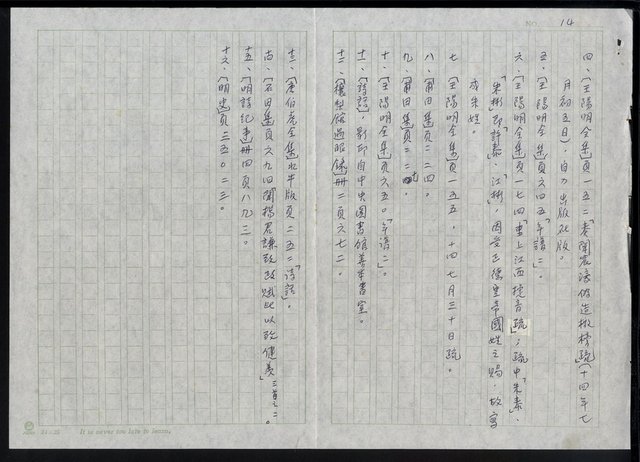 NO. 14
四、〔王陽明全集〕頁一五二「奏聞宸濠偽造檄榜疏」(十四年七
月初五日),自力出版社版。
五、〔王陽明全集〕頁六四五「年譜二」。
六、〔王陽明全集〕頁一七四「書上江西捷音疏」;疏中「朱泰」、
朱彬即「許泰」、「江彬」,因受正德皇帝國姓之賜,故寫
成朱姓。
七、〔王陽明全集〕頁一五五,十四七月三十日疏。
八、〔莆田集〕頁二二四。
九、〔莆田集〕頁二二
十、〔王陽明全集〕頁六五〇「年譜二」。
十一、〔詩話〕,影印自中央圖書館善本書室。
十二、〔穰梨館過眼錄〕冊二頁六七二。
十三、〔唐伯虎全集〕水牛版頁二五二「詩話」。
〔石田集〕頁六九四「聞楊君謙致政賦此以致健羨」二首之二。
十五、〔明詩紀事〕冊四頁八九三。
十六、〔明史〕頁二三五〇二三。
24×25 It is never too late to learn.